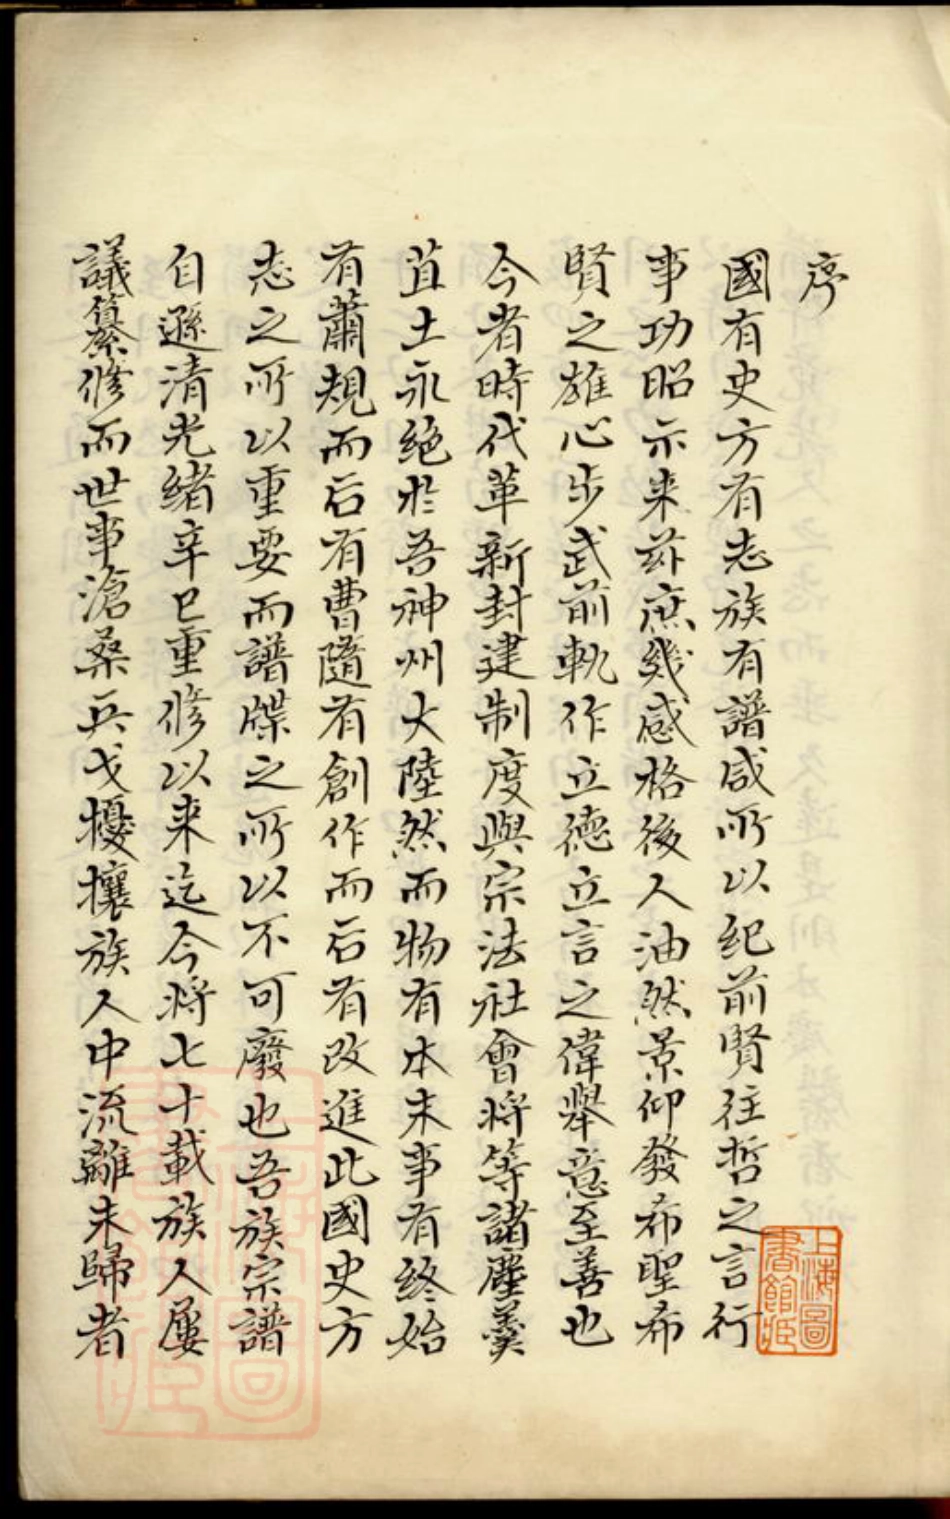 序
國有史方有志族有譜咸所以紀前賢往哲之言行
事功昭示来茲庶幾感格後人油然景仰發希聖希
賢之雄心步武前軌作立德立言之偉舉意至善也
今者時代革新封建制度與宗法社會將等諸塵羹
苴土永絕於吾神州大陸然而物有本末事有終始
有蕭規而后有曹隨有創作而后有改進此國史方
志之所以重要而譜牒之所以不可廢也吾族宗譜
自遜清光緒辛巳重修以来迄今將七十載族人屢
議纂修而世事滄桑兵戈擾攘族人中流離未歸者
上海圖書館藏